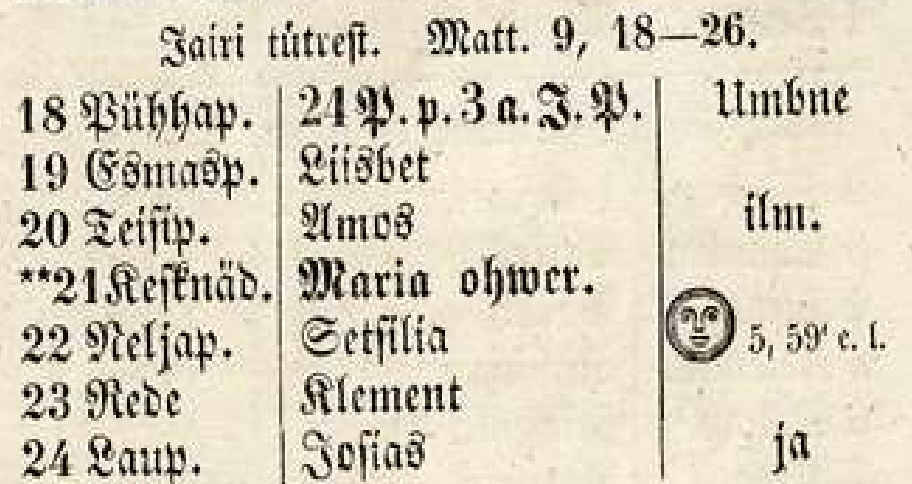 Jairi tütrest. Matt. 9, 18—26.
18 Pühhap. 24 P. p. 3 a. J. P. Umbne
19 Esmasp. Liisbet
20 Teisip. Amos ilm.
**21 Kesknäd. Maria ohwer.
22 Neljap. Setsilia 5, 59' e. l.
23 Rede Klement
24 Laup. Josias ja